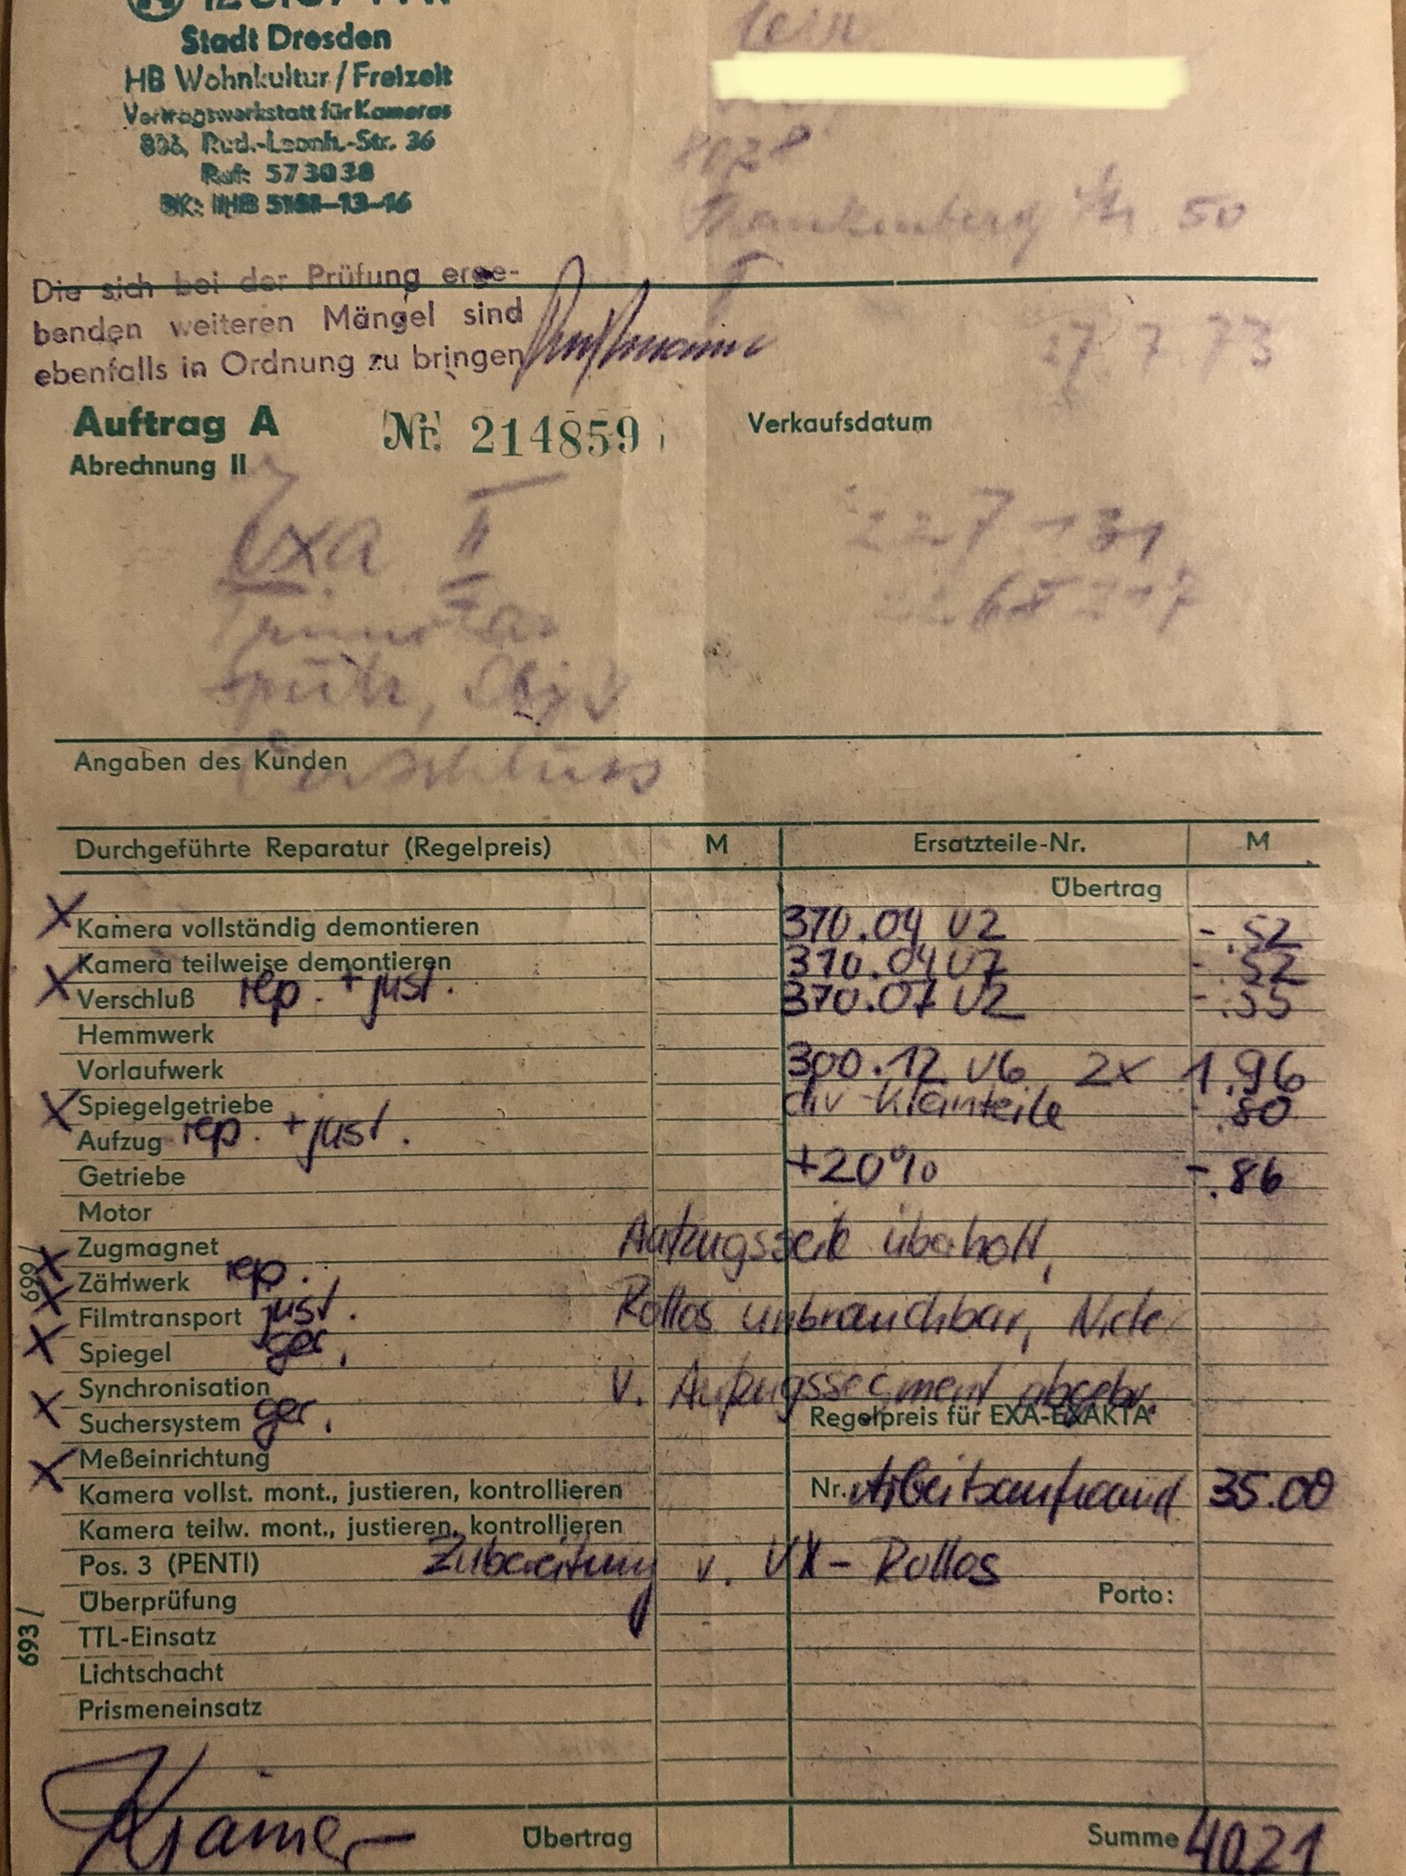 Stadt Dresden
HB Wohnkultur/Freizeit
Vertragswerkstatt für Kameras
806, Rud.-Leonh.-Str. 36
Ruf: 573038
Str. 50
Die sich bei der Prüfung erge-
benden weiteren Mängel sind
ebenfalls in Ordnung zu bringen
27.7.73
Auftrag A Nr. 214859 Verkaufsdatum
Abrechnung II
Exa II 227 131
Angaben des Kunden
Verschluss
Durchgeführte Reparatur (Regelpreis) M Ersatzteile-Nr. M
Übertrag
X Kamera vollständig demontieren 370.04 U2 -.52
Kamera teilweise demontieren 370.04 U7 -.52
X Verschluß rep. + just. 370.07 U2 -.55
Hemmwerk
Vorlaufwerk 300.12 U6 2x 1.96
X Spiegelgetriebe div Kleinteile -.80
Aufzug rep. + just.
Getriebe +20% -.86
Motor
X Zugmagnet Aufzugsseile überholt,
X Zählwerk rep.
Filmtransport just. Rollos unbrauchbar, Niete
X Spiegel ger.
Synchronisation v. Aufzugssegment abgebr.
X Suchersystem ger. Regelpreis für EXA-EXAKTA
X Meßeinrichtung
Kamera vollst. mont., justieren, kontrollieren Nr. Arbeitsaufwand 35.00
Kamera teilw. mont., justieren, kontrollieren
Pos. 3 (PENTI) Zubereitung v. VX-Rollos
Überprüfung Porto:
TTL-Einsatz
693/
Lichtschacht
Prismeneinsatz
Übertrag Summe 4021